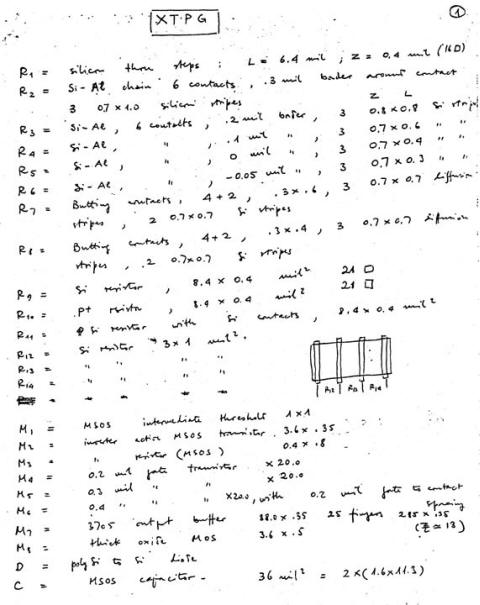 XT·PG
1
R1 = silicon thru steps : L = 6.4 mil ; Z = 0.4 mil (16□)
R2 = Si-Al chain 6 contacts, .3 mil border around contact
3 0.7x1.0 silicon stripes
Z L
R3 = Si-Al, 6 contacts, .2 mil border, 3 0.8x0.8 Si stripes
R4 = Si-Al, " .1 mil ", 3 0.7x0.6 " "
R5 = Si-Al, " 0 mil ", 3 0.7x0.4 " "
R6 = Si-Al, " -0.05 mil ", 3 0.7x0.3 " "
R7 = Butting contacts, 4+2, .3x.6, 3 0.7x0.7 diffusion
stripes, 2 0.7x0.7 Si stripes
R8 = Butting contacts, 4+2, .3x.4, 3 0.7x0.7 diffusion
stripes, .2 0.7x0.7 Si stripes
R9 = Si resistor, 8.4 x 0.4 mil² 21 □
R10 = p+ resistor, 8.4 x 0.4 mil² 21 □
R11 = Si resistor with Si contacts, 8.4 x 0.4 mil²
R12 = Si resistor 3x1 mil².
R13 = " " "
R14 = " " "
R12 R13 R14
M1 = MSOS intermediate threshold 1x1
M2 = inverter active MSOS transistor 3.6 x .35
M3 = " resistor (MSOS) 0.4 x .8
M4 = 0.2 mil gate transistor x 20.0
M5 = 0.3 mil " " x 20.0
M6 = 0.4 " " x20.0, with 0.2 mil gate to contact spacing
M7 = 3705 output buffer 38.0x.35 25 fingers 285 x .35
M8 = thick oxide MOS 3.6 x .5 (Z≃13)
D = poly Si to Si diode
C = MSOS capacitor - 36 mil² = 2x(1.6x11.3)